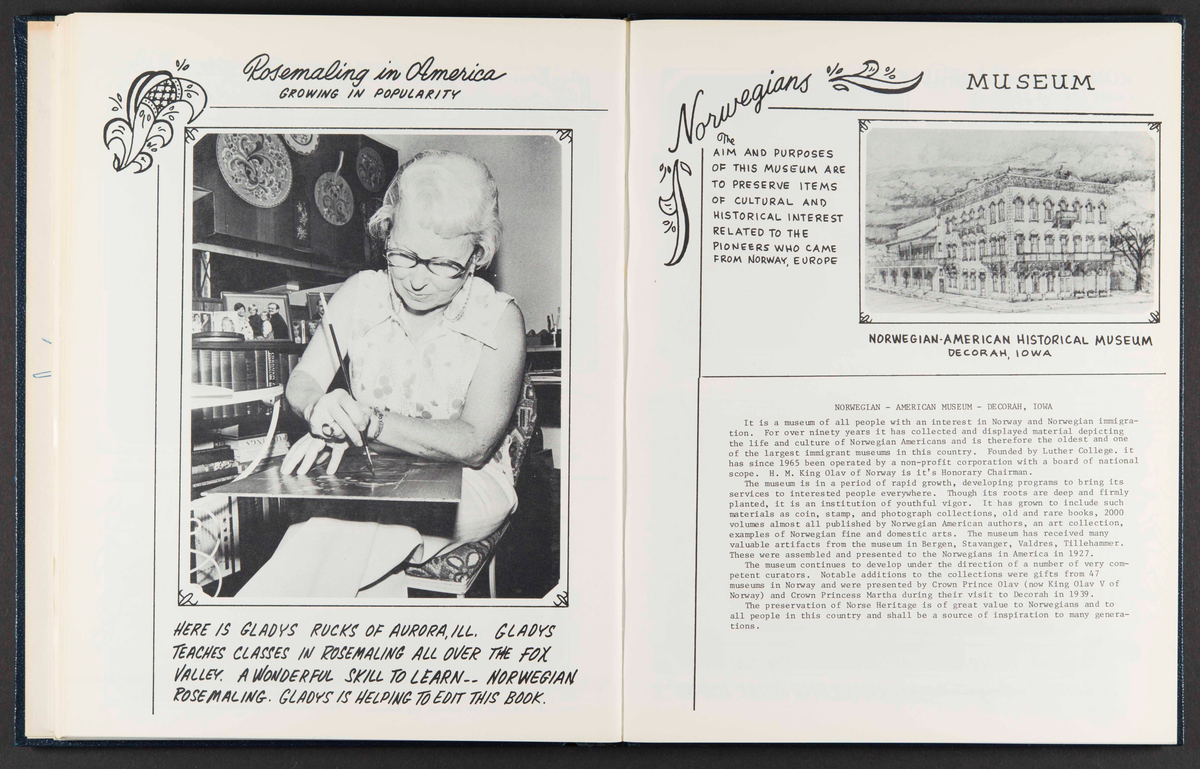 Rosemaling in America
GROWING IN POPULARITY
HERE IS GLADYS RUCKS OF AURORA, ILL. GLADYS
TEACHES CLASSES IN ROSEMALING ALL OVER THE FOX
VALLEY. A WONDERFUL SKILL TO LEARN-- NORWEGIAN
ROSEMALING. GLADYS IS HELPING TO EDIT THIS BOOK.
Norwegians MUSEUM
The
AIM AND PURPOSES
OF THIS MUSEUM ARE
TO PRESERVE ITEMS
OF CULTURAL AND
HISTORICAL INTEREST
RELATED TO THE
PIONEERS WHO CAME
FROM NORWAY, EUROPE
NORWEGIAN-AMERICAN HISTORICAL MUSEUM
DECORAH, IOWA
NORWEGIAN - AMERICAN MUSEUM - DECORAH, IOWA
It is a museum of all people with an interest in Norway and Norwegian immigra-
tion. For over ninety years it has collected and displayed material depicting
the life and culture of Norwegian Americans and is therefore the oldest and one
of the largest immigrant museums in this country. Founded by Luther College. it
has since 1965 been operated by a non-profit corporation with a board of national
scope. H. M. King Olav of Norway is it's Honorary Chairman.
The museum is in a period of rapid growth, developing programs to bring its
services to interested people everywhere. Though its roots are deep and firmly
planted, it is an institution of youthful vigor. It has grown to include such
materials as coin, stamp, and photograph collections, old and rare books, 2000
volumes almost all published by Norwegian American authors, an art collection,
examples of Norwegian fine and domestic arts. The museum has received many
valuable artifacts from the museum in Bergen, Stavanger, Valdres, Tillehammer.
These were assembled and presented to the Norwegians in America in 1927.
The museum continues to develop under the direction of a number of very com-
petent curators. Notable additions to the collections were gifts from 47
museums in Norway and were presented by Crown Prince Olav (now King Olav V of
Norway) and Crown Princess Martha during their visit to Decorah in 1939.
The preservation of Norse Heritage is of great value to Norwegians and to
all people in this country and shall be a source of inspiration to many genera-
tions.